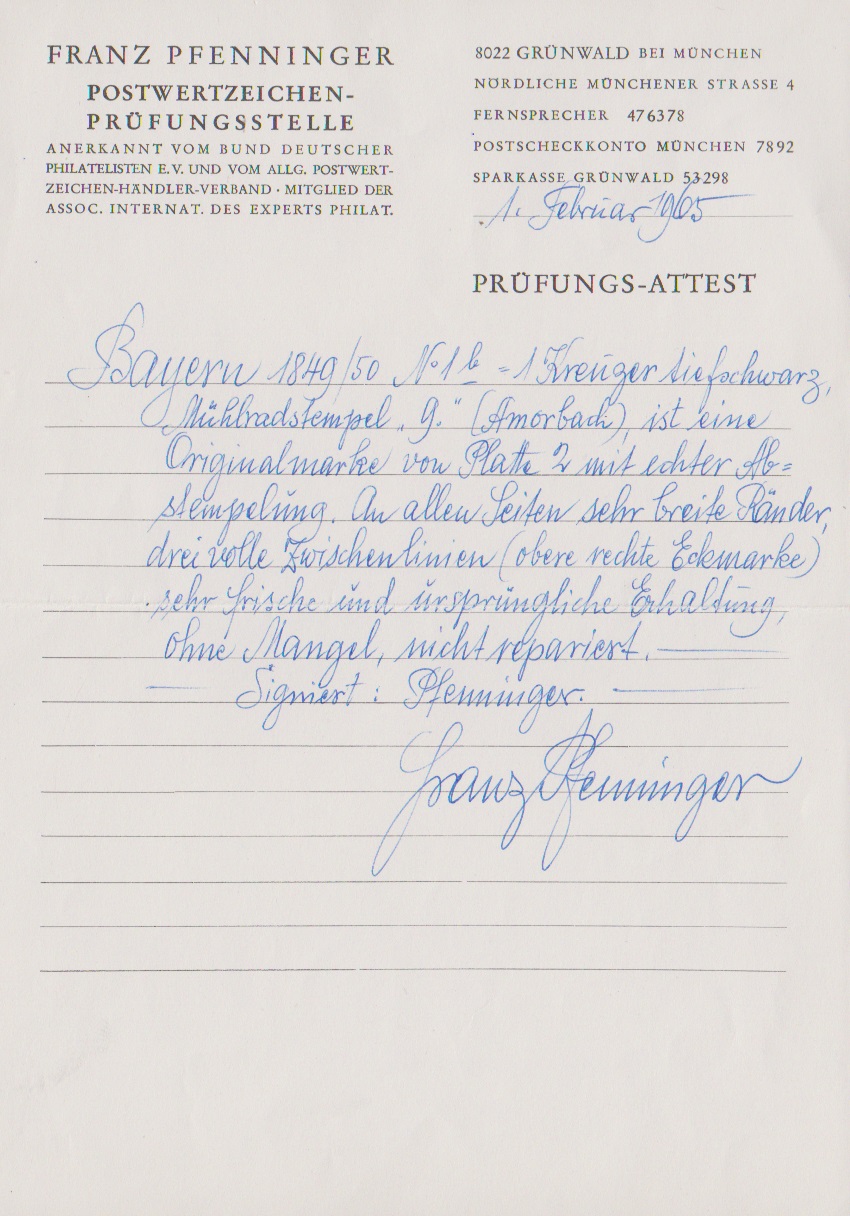 FRANZ PFENNINGER
POSTWERTZEICHEN-
PRÜFUNGSSTELLE
ANERKANNT VOM BUND DEUTSCHER
PHILATELISTEN E.V. UND VOM ALLG. POSTWERT-
ZEICHEN-HÄNDLER-VERBAND · MITGLIED DER
ASSOC. INTERNAT. DES EXPERTS PHILAT.
8022 GRÜNWALD BEI MÜNCHEN
NÖRDLICHE MÜNCHENER STRASSE 4
FERNSPRECHER 476378
POSTSCHECKKONTO MÜNCHEN 7892
SPARKASSE GRÜNWALD 53298
1. Februar 1965
PRÜFUNGS-ATTEST
Bayern 1849/50 No 1b = 1 Kreuzer tiefschwarz,
Mühlradstempel „9." (Amorbach), ist eine
Originalmarke von Platte 2 mit echter Ab=
stempelung. An allen Seiten sehr breite Ränder,
drei volle Zwischenlinien (obere rechte Eckmarke)
sehr frische und ursprüngliche Erhaltung,
ohne Mangel, nicht repariert. —
— Signiert: Pfenninger. —
Franz Pfenninger